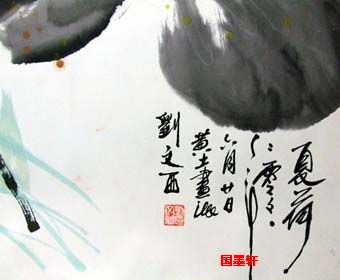 夏荷
六月廿日
黄土畫派
劉文西
国墨轩